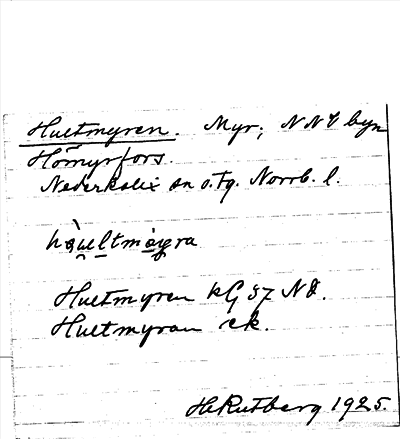 Hultmyren. Myr, NNV byn
Hömyrfors.
Nederkalix sn o. tg. Norrb. l.
Hultmyren kG 87 NO.
Hultmyran ek.
H. Rutberg 1925.